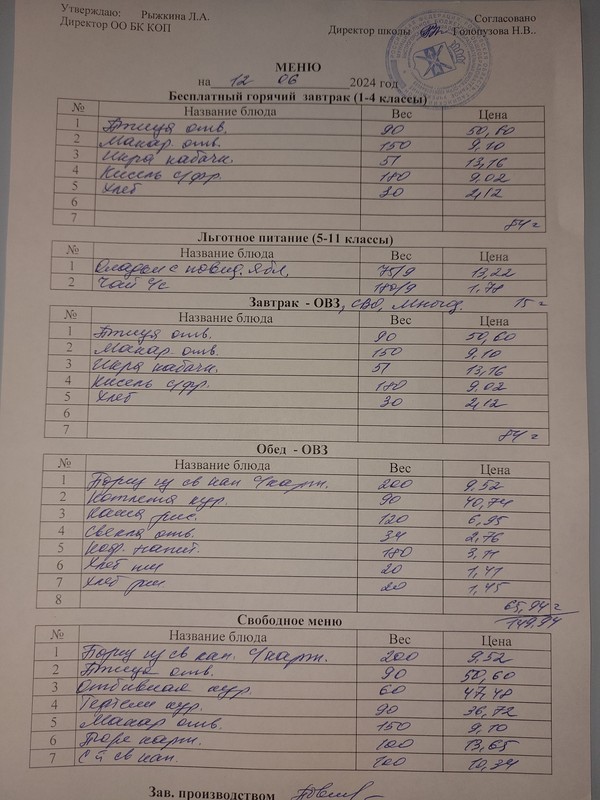 Утверждаю: Рыжкина Л.А.
Директор ОО БК КОП
Согласовано
Директор школы Голопузова Н.В..
МЕНЮ
на 12 06 2024 год
Бесплатный горячий завтрак (1-4 классы)
№ Название блюда Вес Цена
1 Птица отв. 90 50,60
2 Макар. отв. 150 9,10
3 Икра кабачк. 51 13,16
4 Кисель с/фр. 180 9,02
5 Хлеб 30 2,12
6
7 84 =
Льготное питание (5-11 классы)
№ Название блюда Вес Цена
1 Оладьи с повид. ябл. 75/9 13,22
2 Чай с/с 180/9 1,78
Завтрак - ОВЗ, СВО, Многод. 15 =
№ Название блюда Вес Цена
1 Птица отв. 90 50,60
2 Макар. отв. 150 9,10
3 Икра кабачк. 51 13,16
4 Кисель с/фр. 180 9,02
5 Хлеб 30 2,12
6
7 84 =
Обед - ОВЗ
№ Название блюда Вес Цена
1 Борщ из св кап с/карт. 200 9,52
2 Котлета кур. 90 40,74
3 Каша рис. 120 6,95
4 Свекла отв. 34 2,76
5 Коф. напит. 180 3,11
6 Хлеб пш 20 1,41
7 Хлеб рж 20 1,45
8 65,94 =
149,94
Свободное меню
№ Название блюда Вес Цена
1 Борщ из св кап. с/карт. 200 9,52
2 Птица отв. 90 50,60
3 Отбивная кур. 60 47,48
4 Тефтели кур. 90 36,72
5 Макар отв. 150 9,10
6 Пюре карт. 100 13,65
7 С-т св кап. 100 10,34
Зав. производством